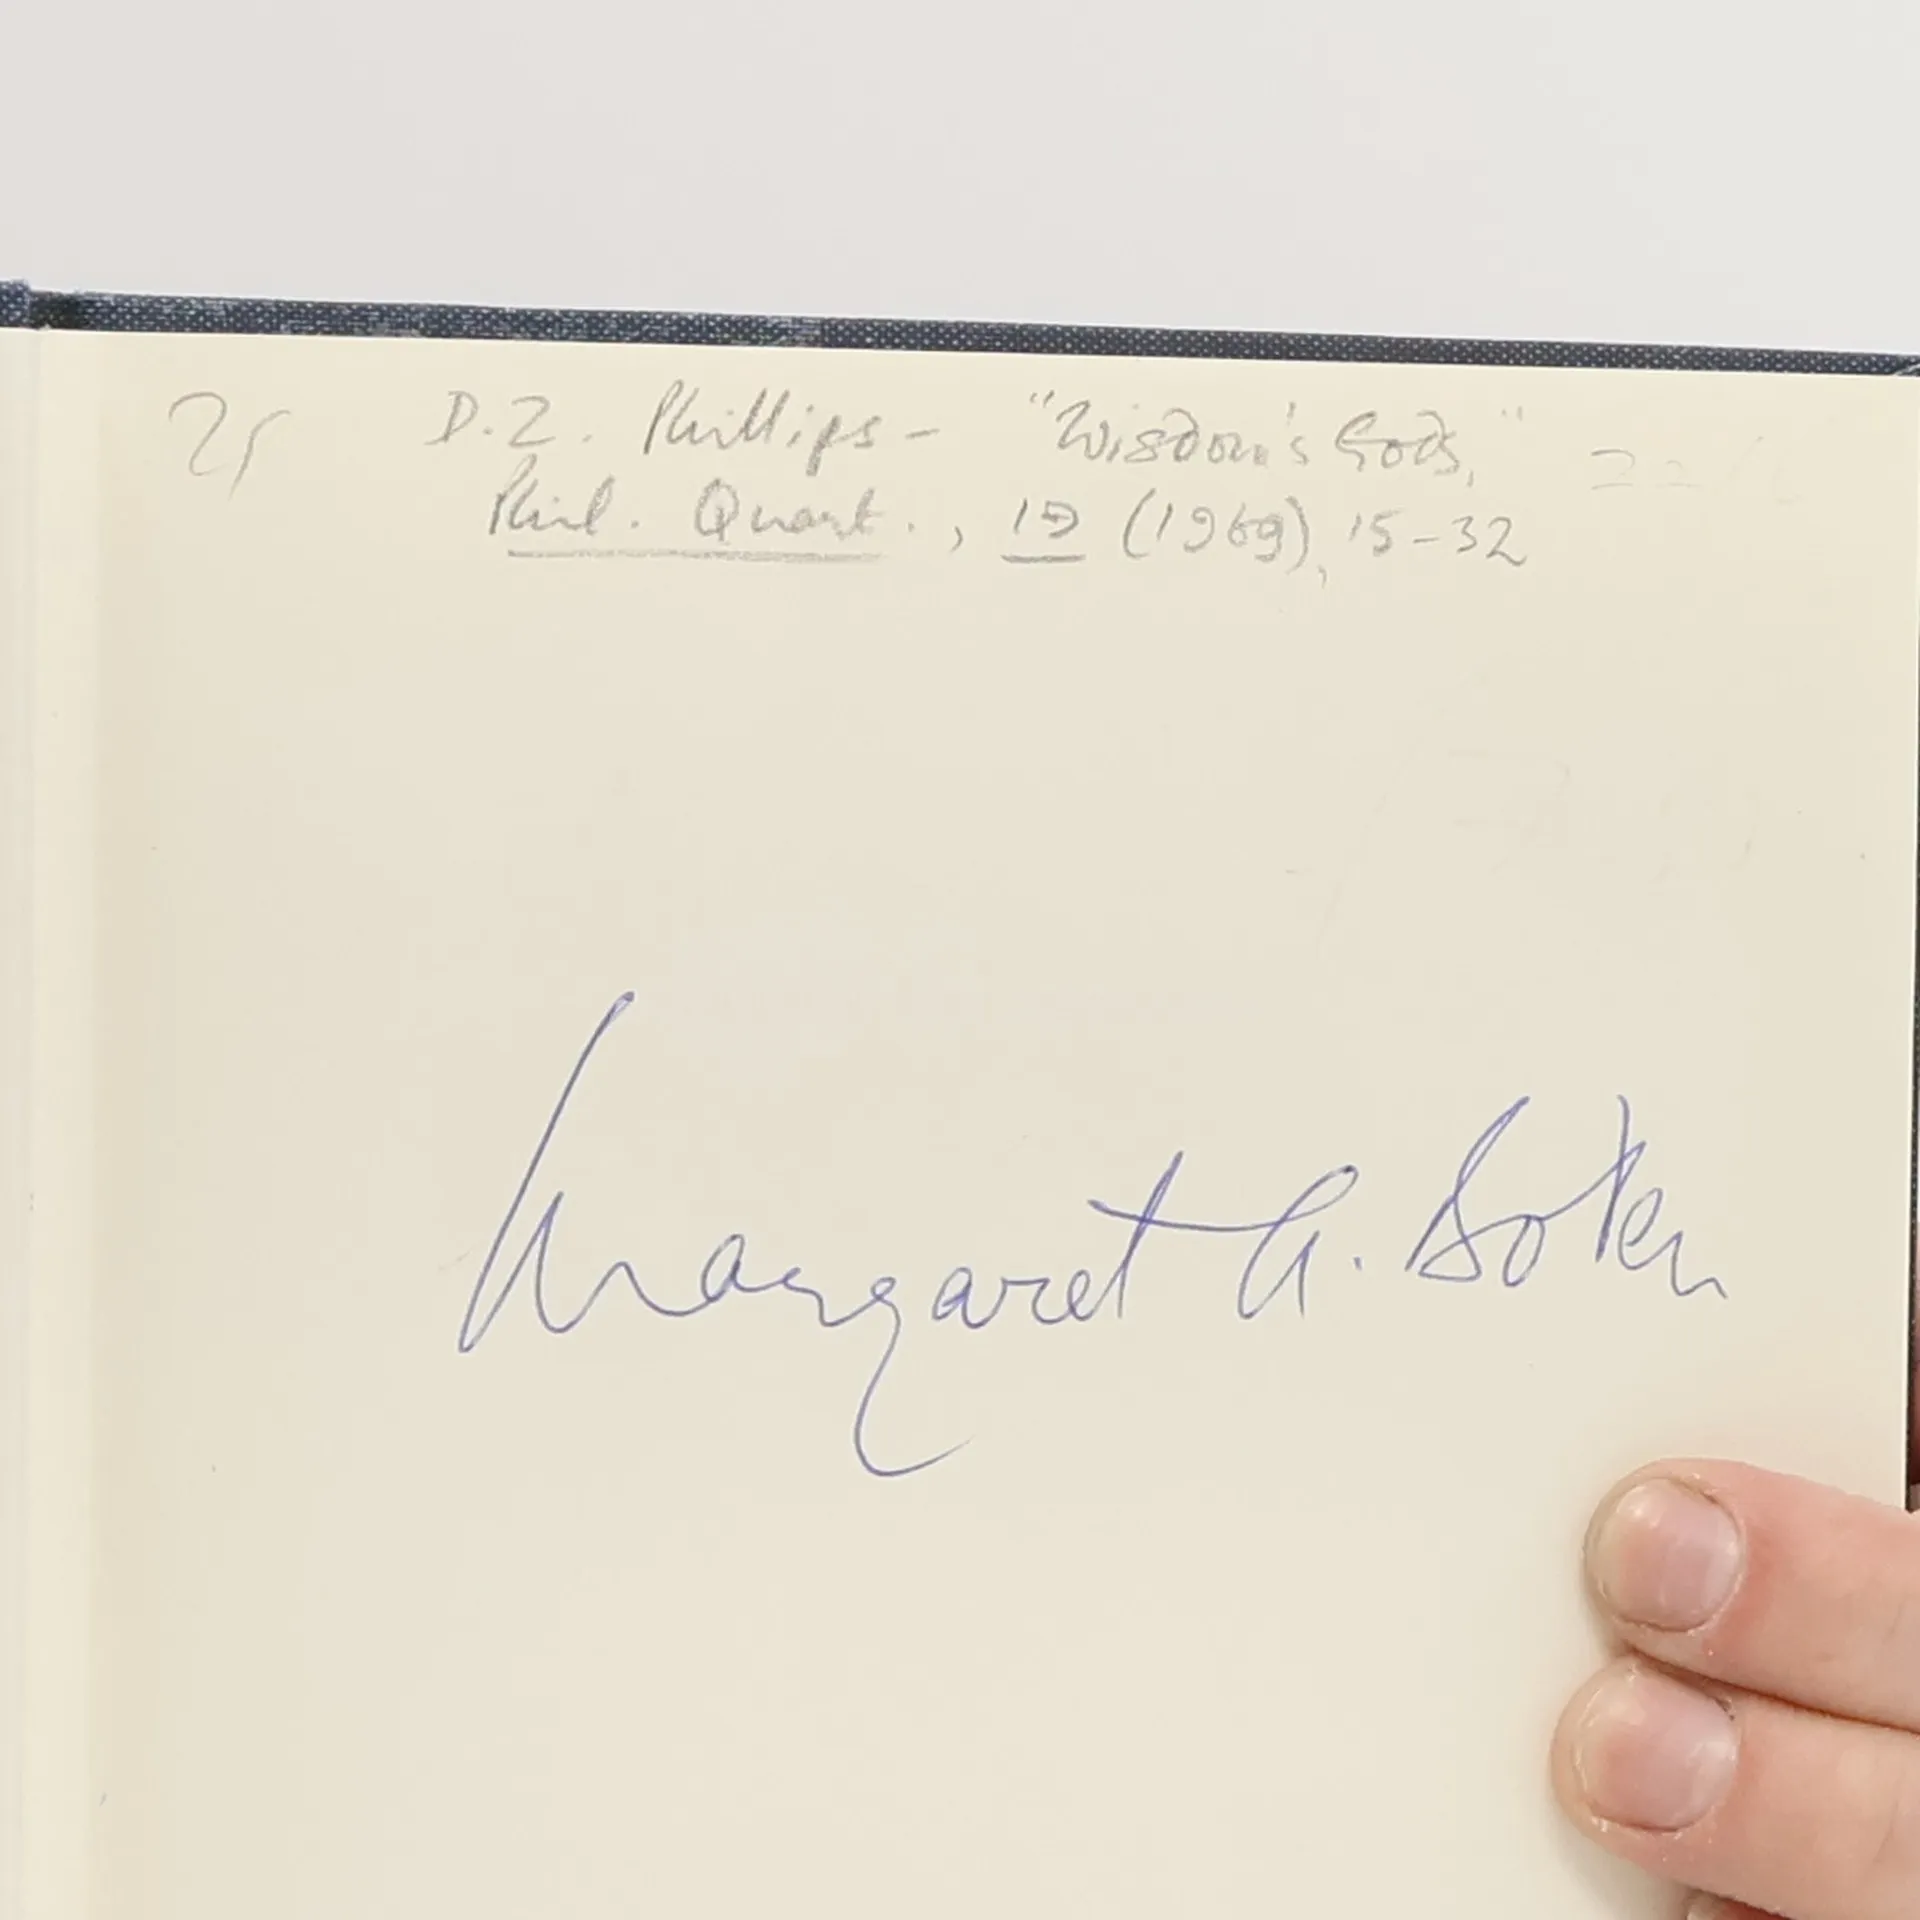 D.Z. Phillips – "Wisdom's Gods,"
Phil. Quart., 19 (1969), 15–32
Margaret A. Boden